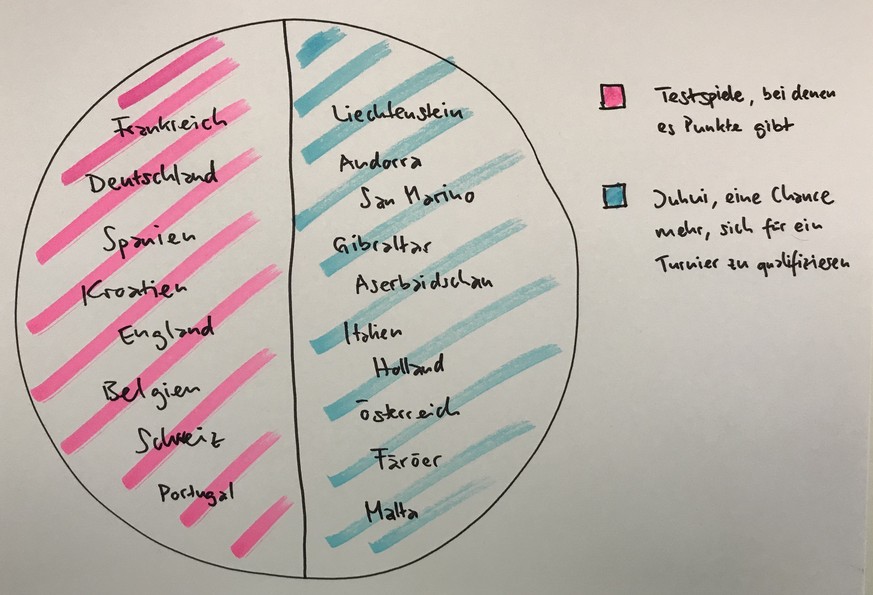 Frankreich
Deutschland
Spanien
Kroatien
England
Belgien
Schweiz
Portugal
Liechtenstein
Andorra
San Marino
Gibraltar
Aserbaidschan
Italien
Holland
Österreich
Färöer
Malta
Testspiele, bei denen
es Punkte gibt
Juhui, eine Chance
mehr, sich für ein
Turnier zu qualifizieren